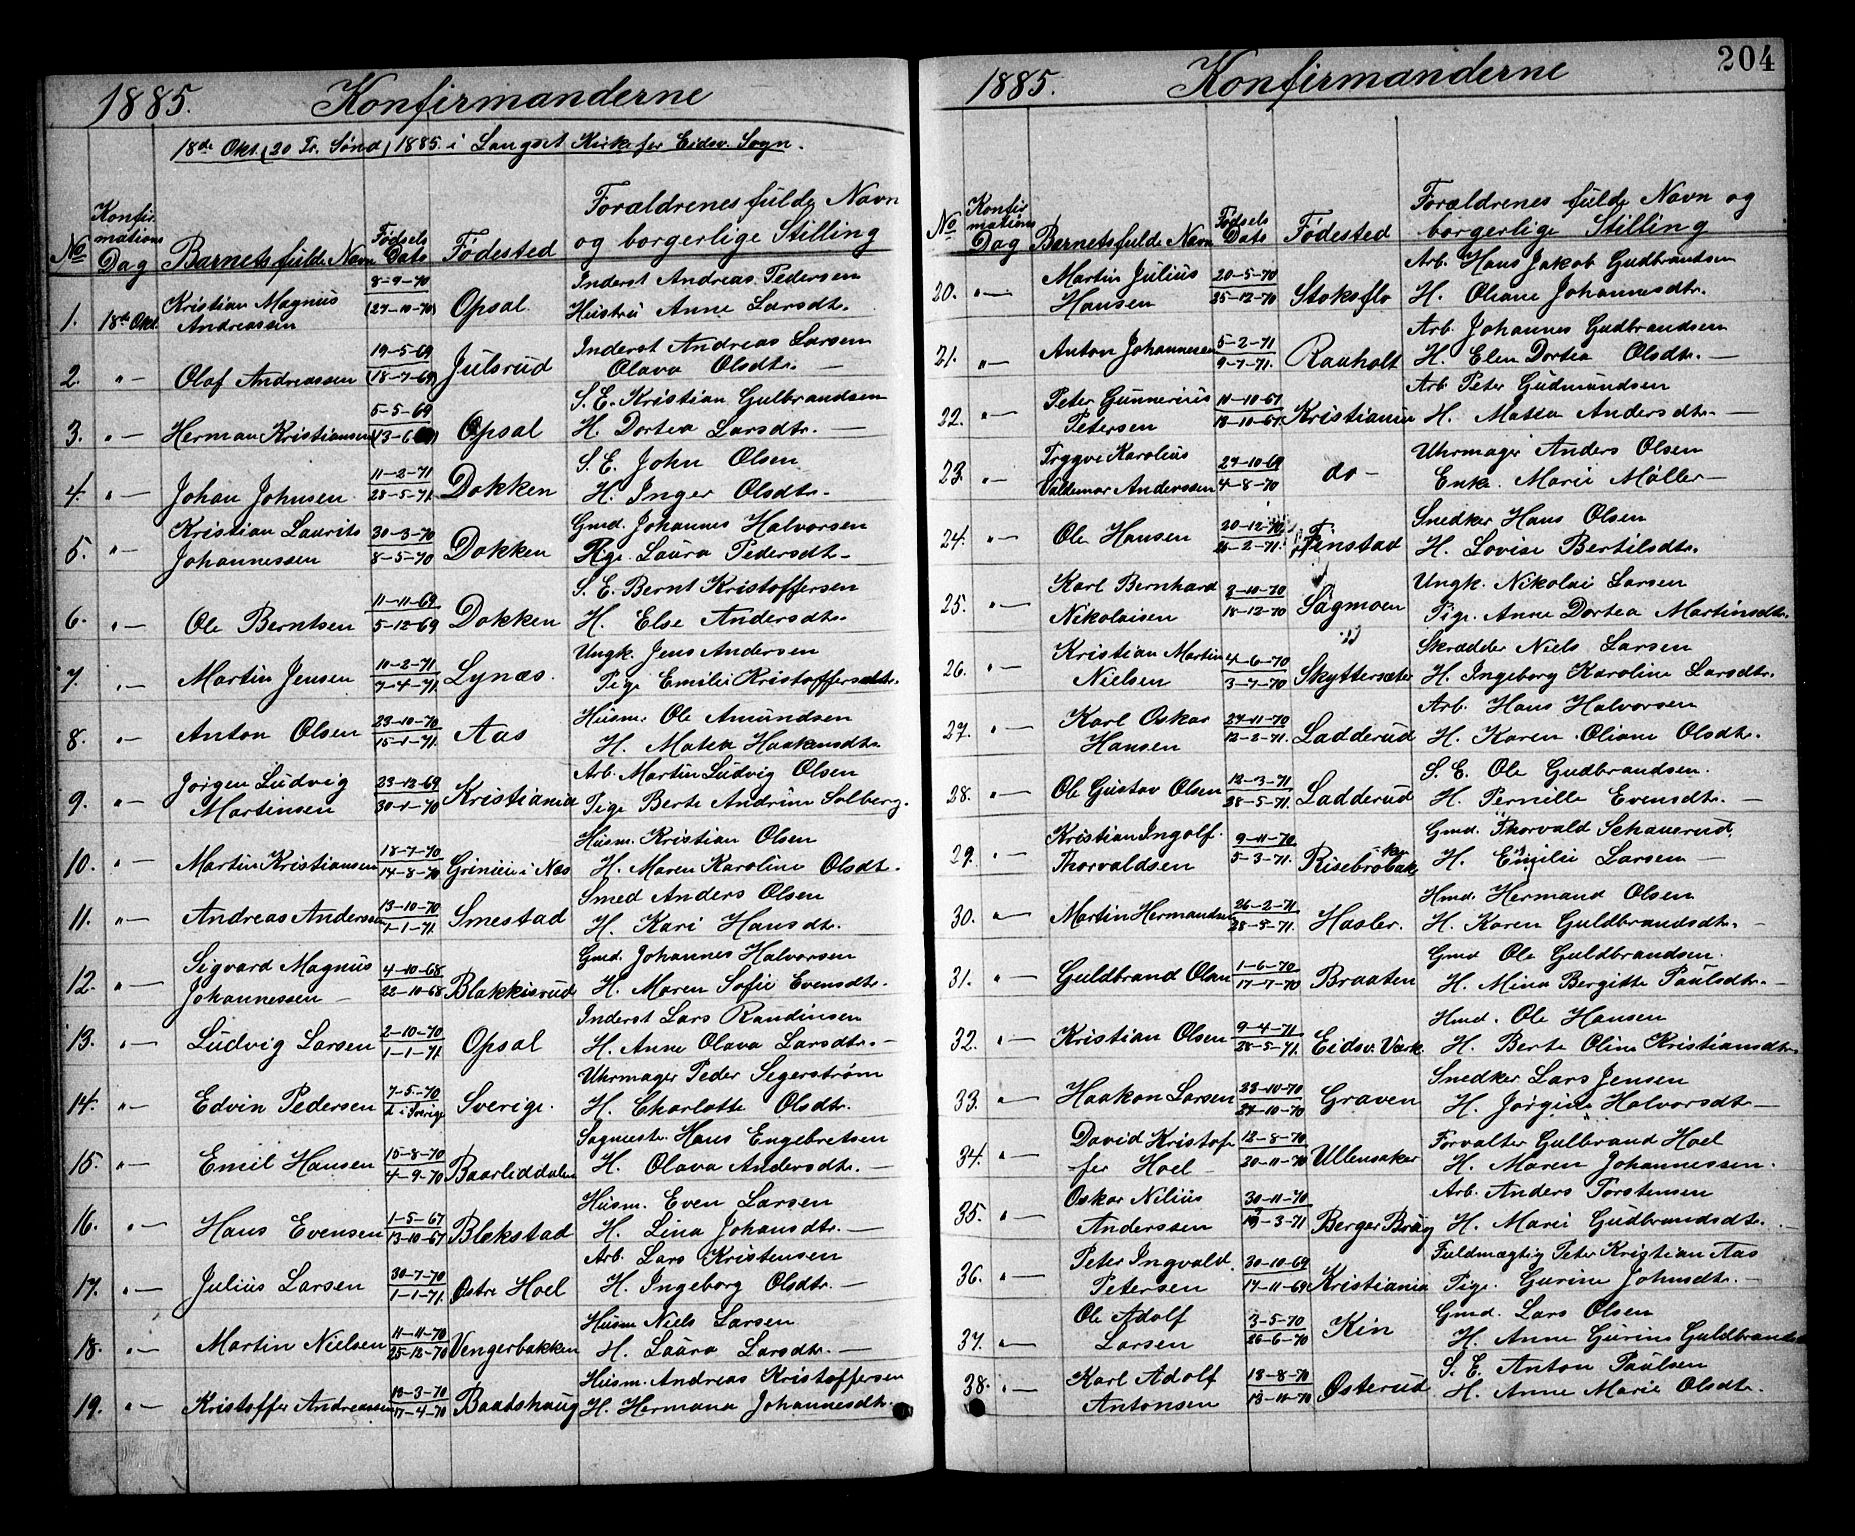 1885. Konfirmanderne
18de Okt. (20 Tr. Sønd) 1885. i Langset Kirke for Eidsv. Sogn.
No Konfirmations Dag Barnets fulde Navn Fødsels Dato Fødested Forældrenes fulde Navn og borgerlige Stilling
1. 18de Okt. Kristian Magnus Andreassen 8-9-70 (27-10-70) Opsal. Inderst Andreas Pedersen Hustru Anne Larsdtr.
2. "— Olaf Andreassen 19-5-69 (18-7-69) Julsrud Inderst Andreas Larsen Olava Olsdtr. —
3. "— Herman Kristiansen 5-5-69 Opsal S.E. Kristian Gulbrandsen H. Dortea Larsdtr. —
4. "— Johan Johnsen. 11-2-71 28-5-71. Dokken S.E. John Olsen H. Inger Olsdtr.
5. "— Kristian Laurits Johannessen 30-3-70 8-5-70 Dokken Gmd. Johannes Halvorsen Pge. Laura Pedersdtr.
6. "— Ole Berntsen 11-11-69 5-12-69 Dokken S.E. Bernt Kristoffersen H. Else Andersdtr.
7. "— Martin Jensen 10-2-71 7-4-71. Lynæs. Ungk. Jens Andersen Pige Emilie Kristoffersdtr.
8. "— Anton Olsen 23-10-70 15-1-71. Aas Husm. Ole Amundsen H. Matea Haakensdtr.
9. "— Jørgen Ludvig Martinsen 23-12-69 30-1-70 Kristiania Arb. Martin Ludvig Olsen Pige Berte Andrine Solberg.
10. "— Martin Kristiansen 18-7-70 14-8-70 Griniei i Næs Husm. Kristian Olsen H. Maren Karoline Olsdt.
11. "— Andreas Anderssen 13-10-70 1-1-71. Smestad Smed Anders Olsen H. Kari Hansdtr.
12. "— Sigvard Magnus Johannessen — 4-10-68 22-10-68 Blakkisrud Gmd. Johannes Halvorsen H. Maren Sofie Evensdtr.
13. "— Ludvig Larsen 2-10-70 1-1-71. Opsal Inderst Lars Randinsen H. Anne Olava Larsdtr. —
14. "— Edvin Pedersen 7-5-70 d. i Sverige Sverige. Uhrmager Peder Segerstrøm H. Charlotte Olsdtr.
15. "— Emil Hansen 15-8-70 4-9-70 Baarliddalen Sagmester Hans Engebretsen H. Olava Andersdtr. —
16. "— Hans Evensen 1-5-67 13-10-67 Blekstad Husm. Even Larsen H. Lina Johansdtr. —
17. "— Julius Larsen 30-7-70 1-1-71. Østre Hoel Arb. Lars Kristensen H. Ingeborg Olsdtr. —
18. "— Martin Nielsen 11-11-70 25-12-70 Vengerbakken Husm Niels Larsen H. Laura Larsdtr. —
19. "— Kristoffer Andreassen 13-3-70 17-4-70 Baadshaug Husm. Andreas Kristoffersen H. Hermana Johannesdtr.
1885. Konfirmanderne 204
No Konfirmations Dag Barnets fulde Navn Fødsels Dato Fødested Forældrenes fulde Navn og borgerlige Stilling
20. "— Martin Julius Hansen 20-5-70 25-12-70 Stoksflo Arb. Hans Jakob Gudbrandsen H. Oliane Johannesdtr.
21. "— Anton Johannesen 5-2-71 9-7-71. Raaholt Arb. Johannes Gudbrandsen H. Elen Dortea Olsdtr. —
22. "— Peter Gunnerius Petersen 11-10-67 13-10-67. Kristiania Arb. Peter Gudmundsen H. Matea Andersdtr. —
23. "— Trygve Karolius Valdemar Anderssen 27-10-69 4-8-70 do — Uhrmager Anders Olsen Enk. Marie Møller —
24. "— Ole Hansen 20-12-70 26-2-71. Finstad Snedker Hans Olsen H. Lovise Bertilsdtr.
25. "— Karl Bernhard Nikolaisen 3-10-70 18-12-70 Sagmoen Ungk. Nikolai Larsen Pige. Anne Dortea Martinsdtr.
26. "— Kristian Martin Nielsen 4-6-70 3-7-70 Skyttersæter Skrædder Niels Larsen H. Ingeborg Karoline Larsdtr.
27. "— Karl Oskar Hansen 27-11-70 12-2-71. Ladderud Arb. Hans Halvorsen H. Karen Oliane Olsdtr.
28. "— Ole Gustav Olsen 12-3-71 28-5-71. Ladderud S.E. Ole Gudbrandsen. H. Pernille Evensdtr. —
29. "— Kristian Ingolf. Thorvaldsen 9-11-70 5-3-71. Risebrobak Gmd. Thorvald Schauerud. H. Emilie Larsen —
30. "— Martin Hermandsen 26-2-71 28-5-71. Hasler. Hmd. Hermand Olsen H. Karen Guldbrandsdtr.
31. "— Guldbrand Olsen 1-6-70 17-7-70 Braaten Gmd Ole Guldbrandsen. H. Mina Bergitte Paulsdtr.
32. "— Kristian Olsen 9-4-71 28-5-71. Eidsv. Værk Hmd. Ole Hansen H. Berte Oline Kristiansdtr.
33. "— Haakon Larsen 23-10-70 27-10-70 Graven Snedker Lars Jensen H. Jørgine Halvorsdtr —
34. "— David Kristoffer Hoel — 12-8-70 20-11-70 Ullensaker Forvalter Gulbrand Hoel H. Maren Johannessen.
35. "— Oskar Nilius Anderssen 30-11-70 19-3-71 Berger Brug Arb. Anders Torstensen H. Marie Gudbrandsdtr.
36. "— Peter Ingvald. Petersen 30-10-69 17-11-69 Kristiania Fuldmægtig Peter Kristian Aas Pige. Gurine Johnsdtr. —
37. "— Ole Adolf Larsen 3-5-70 26-6-70 Kin Gmd. Lars Olsen H. Anne Gurine Guldbrandsd
38. "— Karl Adolf Antonsen 13-8-70 13-11-70 Østerud S.E. Anton Paulsen H. Anne Marie Olsdtr.